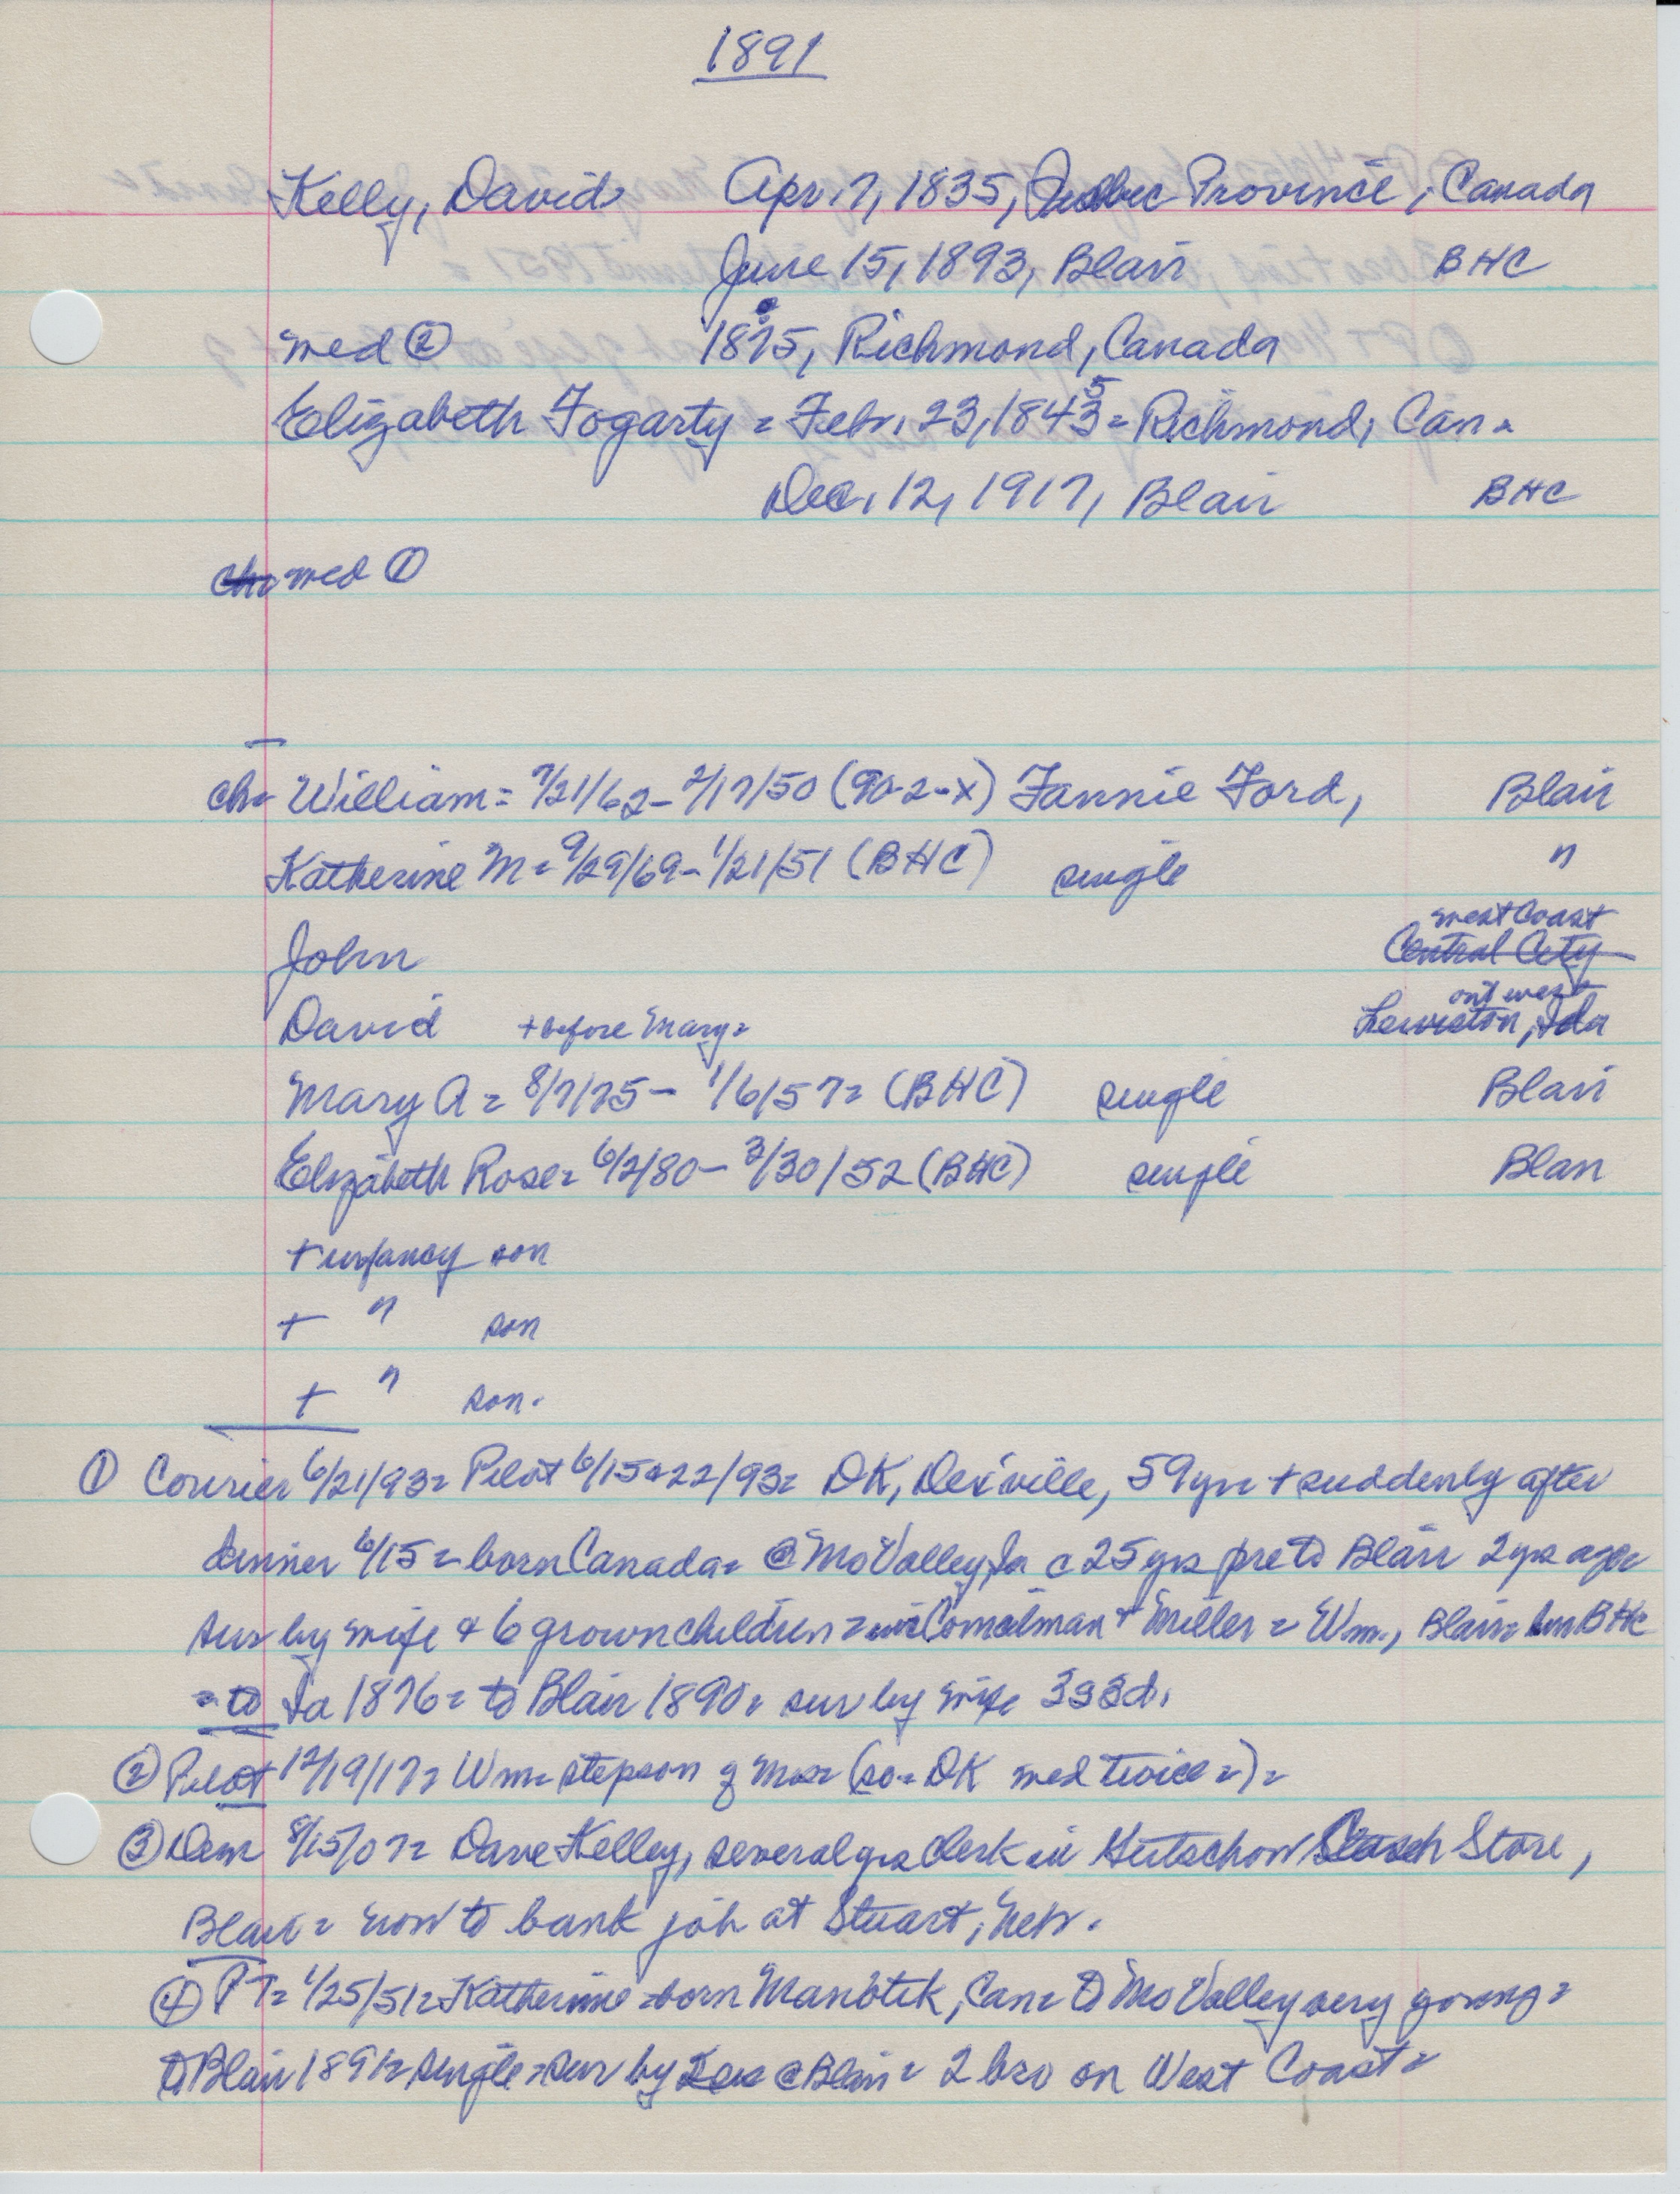 1891
Kelly, David Apr. 7, 1835, Quebec Province, Canada
June 15, 1893, Blair BHC
med ② 1875, Richmond, Canada
5
Elizabeth Fogarty = Feb. 23, 1843 = Richmond, Can.
Dec. 12, 1917, Blair BHC
ch= med ①
ch= William = 7/21/62 - 2/17/50 (90-2-X) Fannie Ford, Blair
Katherine M = 9/29/69 - 1/21/51 (BHC) single "
West Coast
John Central City
out west
David + before Mary = Lewiston, Ida
Mary A = 8/7/75 - 1/6/57 = (BHC) single Blair
Elizabeth Rose = 6/2/80 - 3/30/52 (BHC) single Blair
+ infancy son
+ " son
+ " son.
① Courier 6/21/93 = Pilot 6/15 & 22/93 = DK, DeS'ville, 59 yrs + suddenly after
dinner 6/15 = born Canada = @ Mo Valley, Ia c 25 yrs pre to Blair 2 yrs ago =
sur by wife & 6 grown children = Councilman + Miller = Wm., Blair = BHC
= to Ia 1876 = to Blair 1890 = sur by wife 3s 3d.
② Pilot 12/19/17 = Wm = stepson of Mrs = (so = DK med twice =) =
③ Dem 8/15/07 = Dave Kelley, several yrs clerk in Gutschow Store,
Blair = now to bank job at Stuart, Neb.
④ PT = 1/25/51 = Katherine = born Manotik, Can = to Mo Valley very young =
to Blair 1891 = single = sur by @ Blair = 2 bro on West Coast =